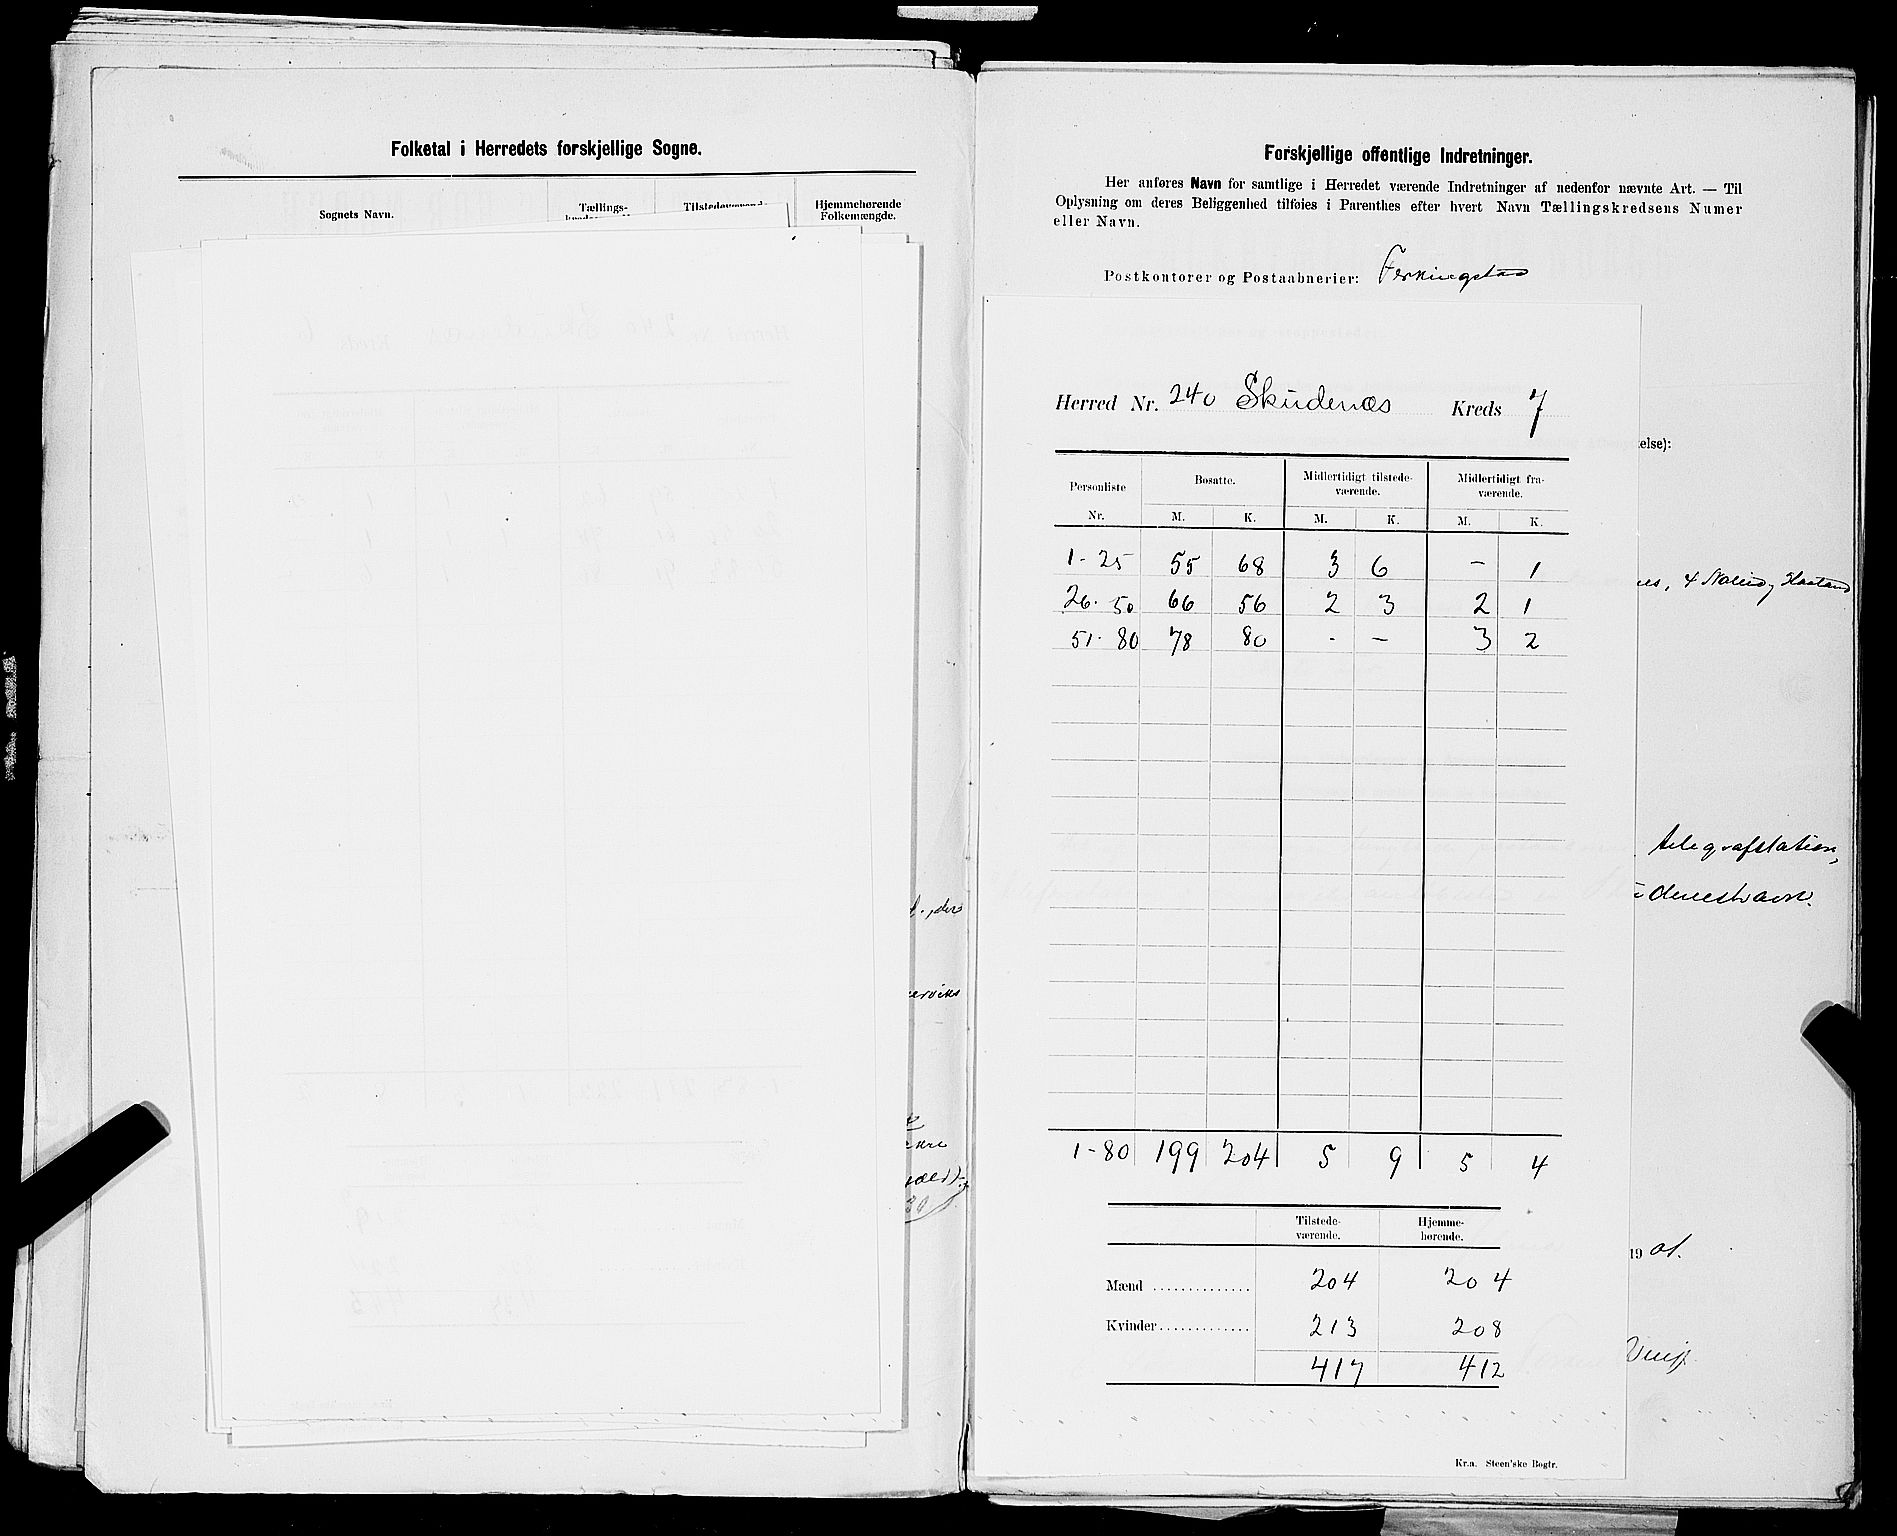 Folketal i Herredets forskjellige Sogne.
Sognets Navn.
Tællings-
Hjemmehørende
Folkemængde.
Forskjellige offentlige Indretninger.
Her anføres Navn for samtlige i Herredet værende Indretninger af nedenfor nævnte Art. — Til
Oplysning om deres Beliggenhed tilføies i Parenthes efter hvert Navn Tællingskredsens Numer
eller Navn.
Postkontorer og Postaabnerier: Ferkingstad
Herred Nr. 240 Skudenæs Kreds 7
else):
Personliste Bosatte. Midlertidigt tilstede- Midlertidigt fra-
værende. værende.
Nr. M. K. M. K. M. K.
1-25 55 68 3 6 - 1
26-50 66 56 2 3 2 1
51-80 78 80 - - 3 2
telegrafstation,
1-80 199 204 5 9 5 4
Tilstede- Hjemme-
værende. hørende.
1901.
Mænd .............. 204 204
Kvinder............. 213 208
417 412
Kr.a. Steen'ske Bogtr.